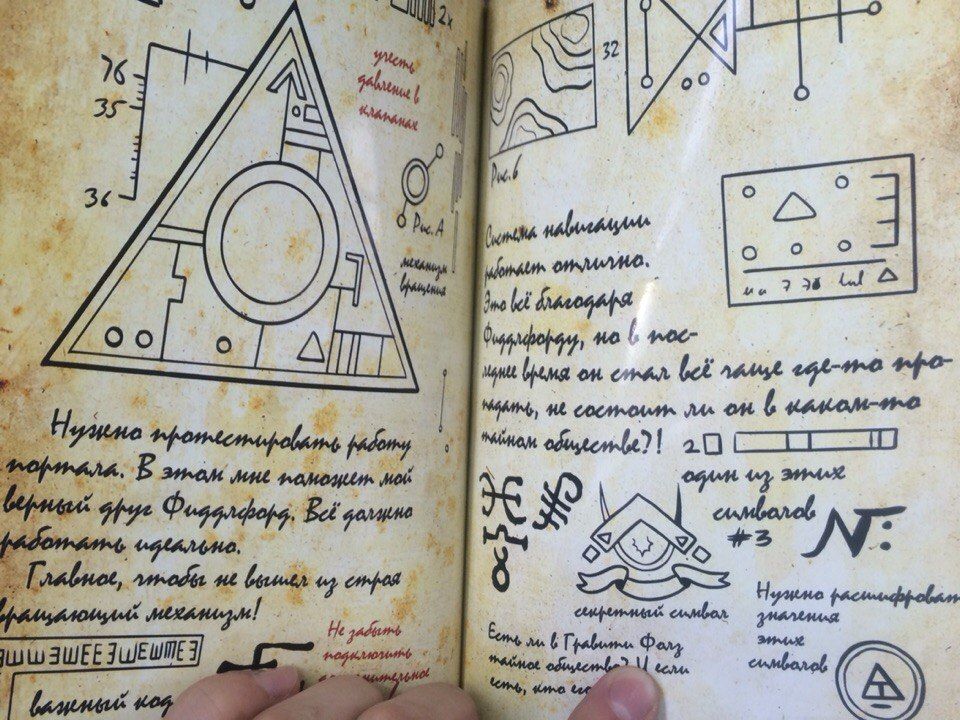 2х
76
35
36
учесть
давление в
клапанах
Рис. А
механизм
вращения
Нужно протестировать работу
портала. В этом мне поможет мой
верный друг Фиддлфорд. Всё должно
работать идеально.
Главное, чтобы не вышел из строя
вращающий механизм!
важный код
Не забыть
подключить
32
Рис. Б
Система навигации
работает отлично.
Это всё благодаря
Фиддлфорду, но в пос-
леднее время он стал всё чаще где-то про-
падать, не состоит ли он в каком-то
тайном обществе?!
2
один из этих
символов
#3
секретный символ
Нужно расшифровать
значения
этих
символов
Есть ли в Гравити Фолз
тайное общество? И если
есть, кто его